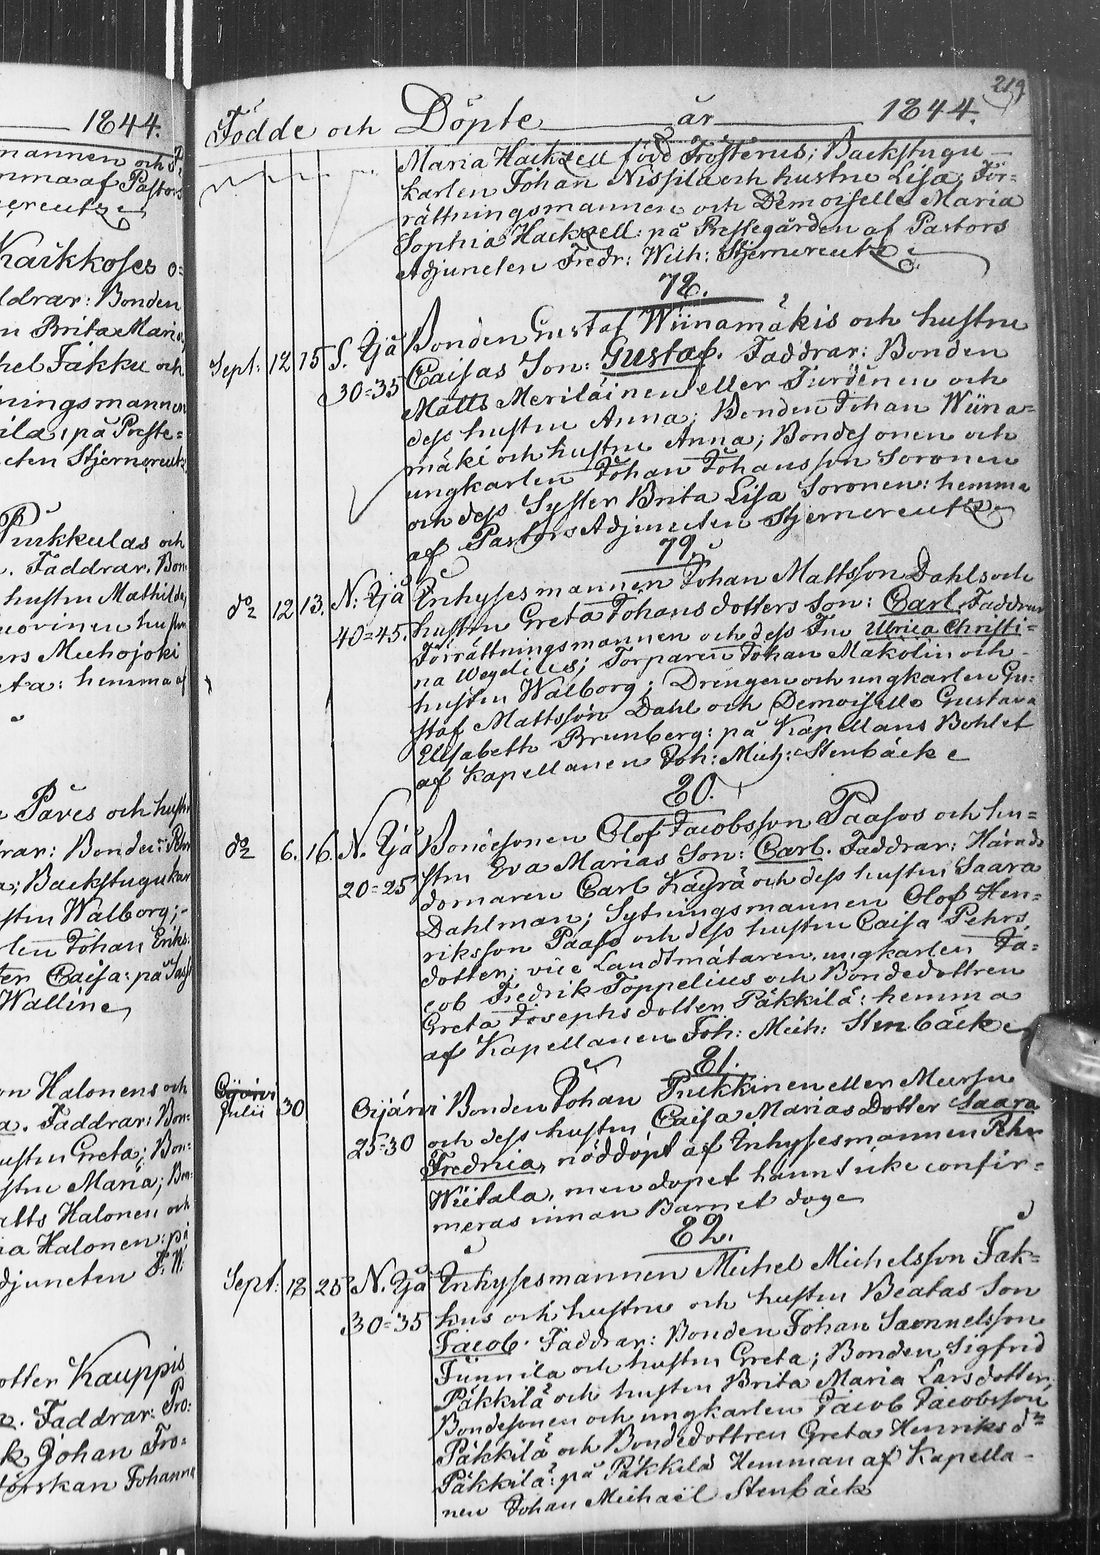 1844.
mannen och
mma af Pastors
Kaikkoses o=
ddrar: Bonden
n Brita Maria,
hel Jakku och
ningsmannen
ila, på Preste=
cten Stjerncreutz
Purkkulas och
. Faddrar. Bon
hustru Mathilda,
hustru
ers Michojoki
eta: hemma af
Påves och hustr
rar: Bonden Pehr
a; Backstugukar
ustru Walborg;
len Johan Eriks:
ter Caisa: på
Walline
on Halonens och
a. Faddrar: Bon:
ustru Greta; Bon:
stru Maria; Bon
atts Halonen och
ia Halonen: på
djuncten F: W:
otter Kauppis
Faddrar: Pro:
k Johan Fro=
orskan Johanna
219
Födde och Döpte år 1844.
Maria Hackzell född Frosterus; Backstugu
karlen Johan Nissila och hustru Lisa; För=
rättningsmannen och Demoiselle Maria
Sophia Hackzell: på Prestegården af Pastors
Adjuncten Fredr: Wilh: Stjerncreutz
78.
Sept: 12 15 S. Ijä Bonden Gustaf Wiinamäkis och hustru
30=35 Caisas Son: Gustaf. Faddrar: Bonden
Matts Meriläinen eller Turdenen och
dess hustru Anna; Bonden Johan Wiina=
mäki och hustru Anna; Bondesonen och
ungkarlen Johan Johansson Soronen
och dess Syster Brita Lisa Soronen: hemma
af Pastors Adjuncten Stjerncreutz
79.
do 12 13. N: Ijä Inhysesmannen Johan Mattsson Dahls och
40=45. hustru Greta Johansdotters Son: Carl. Faddrar
Förrättningsmannen och dess Fru Ulrica Christi=
na Wegelius; Torparen Johan Makolin och
hustru Walborg; Drengen och ungkarlen Gu=
staf Mattsson Dahl och Demoiselle Gustava
Elisabeth Brunberg: på Kapellans Bohlet
af Kapellanen Joh: Mich: Stenbäck
80.
do 6. 16. N. Ijä Bondesonen Olof Jacobsson Paasos och hu=
20=25 stru Eva Marias Son: Carl. Faddrar: Härads
domaren Carl Käyrä och dess hustru Saara
Dahlman; Sytningsmannen Olof Hen=
riksson Paaso och dess hustru Caisa Pehrs
dotter; vice Landtmätaren, ungkarlen Ja=
cob Fredrik Toppelius och Bondedottren
Greta Josephsdotter Päkkilä: hemma
af Kapellanen Joh: Mich: Stenbäck
81.
Oijärvi
Julii 30 Oijärvi Bonden Johan Pukkinen eller Mursu
25=30 och dess hustru Caisa Marias Dotter Saara
Fredrica, nöddöpt af Inhysesmannen Pehr
Wiitala, men dopet hann icke confir=
meras innan Barnet dog
82.
Sept: 18 25 N. Ijä Inhysesmannen Michel Michelsson Jak=
30=35 kus och hustru och hustru Beatas Son
Jacob. Faddrar: Bonden Johan Samuelsson
Tunnila och hustru Greta; Bonden Sigfrid
Päkkilä och hustru Brita Maria Larsdotter;
Bondesonen och ungkarlen Jacob Jacobsson
Päkkilä och Bondedottren Greta Henriks dr
Päkkilä: på Päkkilä Hemman af Kapella
nen Johan Michaël Stenbäck